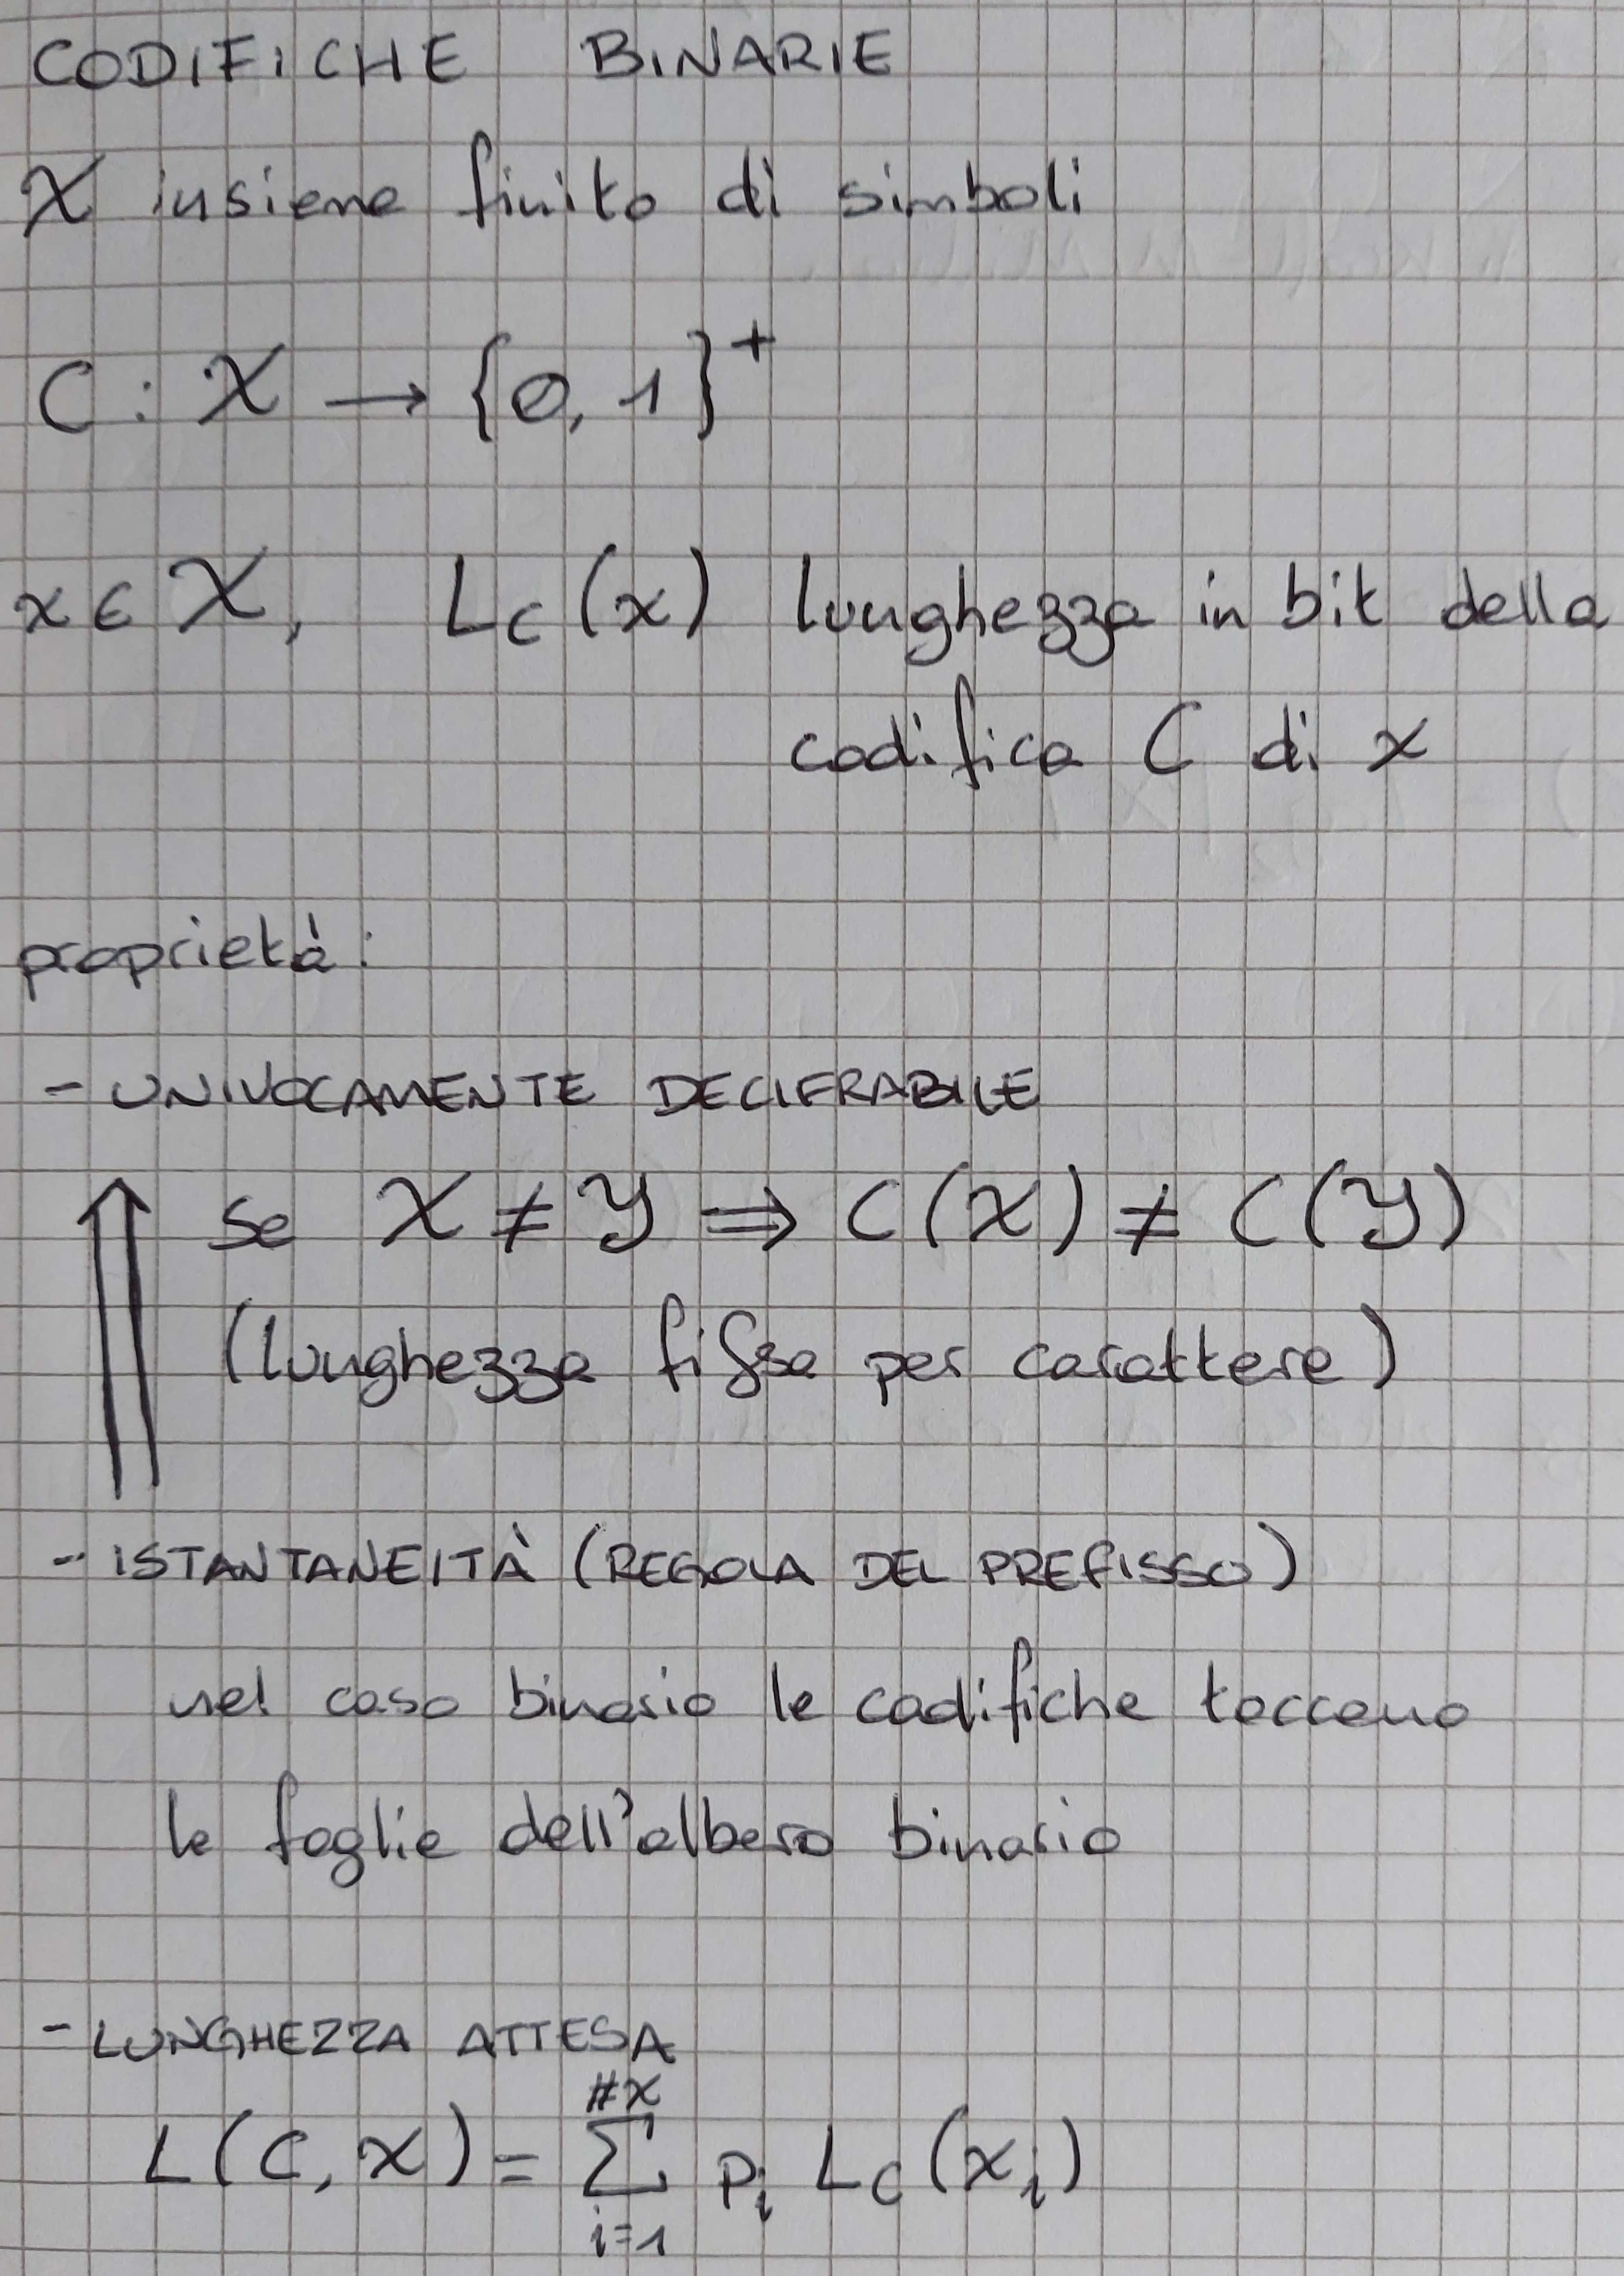 CODIFICHE BINARIE
X insieme finito di simboli
C : X → {0, 1}⁺
x ∈ X, L_C(x) lunghezza in bit della
codifica C di x
proprietà:
- UNIVOCAMENTE DECIFRABILE
se X ≠ Y ⇒ C(X) ≠ C(Y)
(lunghezza fissa per carattere)
- ISTANTANEITÀ (REGOLA DEL PREFISSO)
nel caso binario le codifiche toccano
le foglie dell'albero binario
- LUNGHEZZA ATTESA
L(C, X) = ∑_{i=1}^{#X} p_i L_C(x_i)